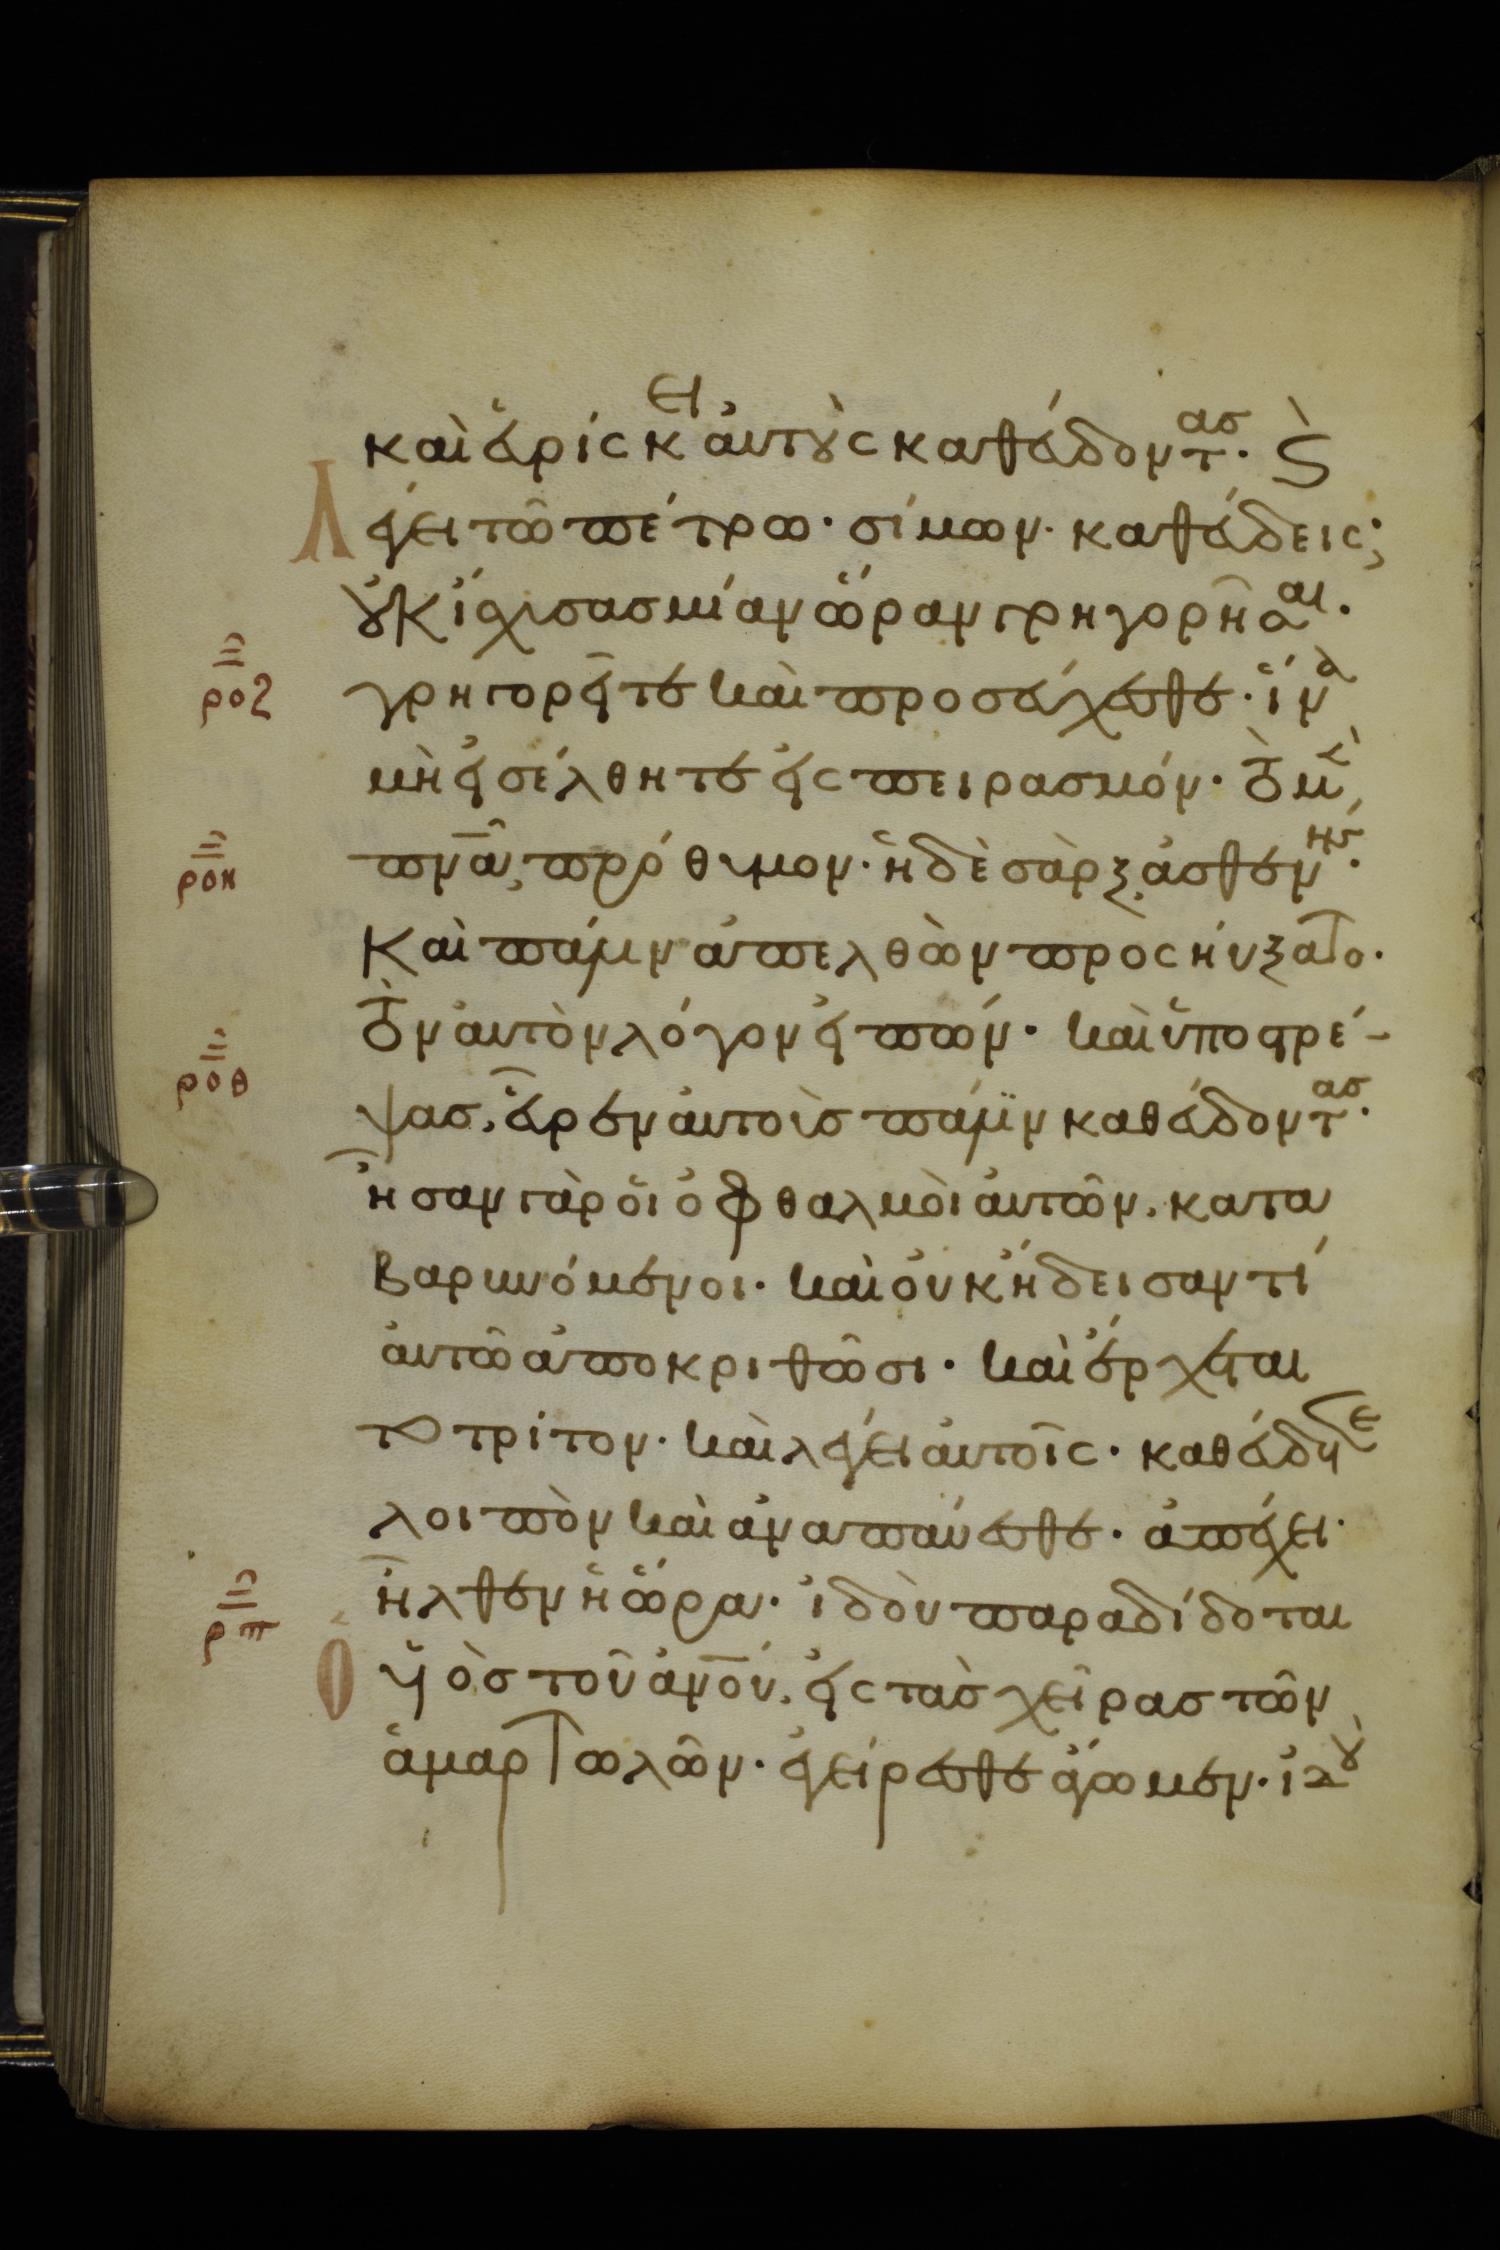 καὶ εὑρίσκει αὐτοὺς καθεύδοντας· καὶ
λέγει τῶ πέτρω· σίμων· καθεύδεις;
οὐκ ἴσχυσας μίαν ὥραν γρηγορῆσαι·
ροζ γρηγορεῖτε καὶ προσεύχεσθε· ἵνα
μὴ εἰσέλθητε εἰς πειρασμόν· τὸ μὲν
ροη πνα, πρόθυμον· ἡ δὲ σὰρξ, ἀσθενής·
καὶ πάλιν ἀπελθὼν προσηύξατο·
ροθ τὸν αὐτὸν λόγον εἰπών· καὶ ὑποστρέ-
ψας, εὗρεν αὐτοὺς πάλϊν καθεύδοντας·
ἦσαν γὰρ ὁι ὀφθαλμὸι ἀυτῶν, κατα
βαρυνόμενοι· καὶ οὐκ ἤδεισαν τί
ἀυτῶ ἀποκριθῶσι· καὶ ἔρχεται
το τρίτον· καὶ λέγει ἀυτοῖς· καθεύδετε
λοιπὸν καὶ ἀναπαύεσθε· ἀπέχει·
ρπ ἦλθεν ἡ ὥρα· ἰδοὺ παραδίδοται
ὁ υἱὸς τοῦ ἀνου, εἰς τὰς χεῖρας τῶν
ἁμαρτωλῶν· ἐγείρεσθε ἄγωμεν· ἰδοὺ